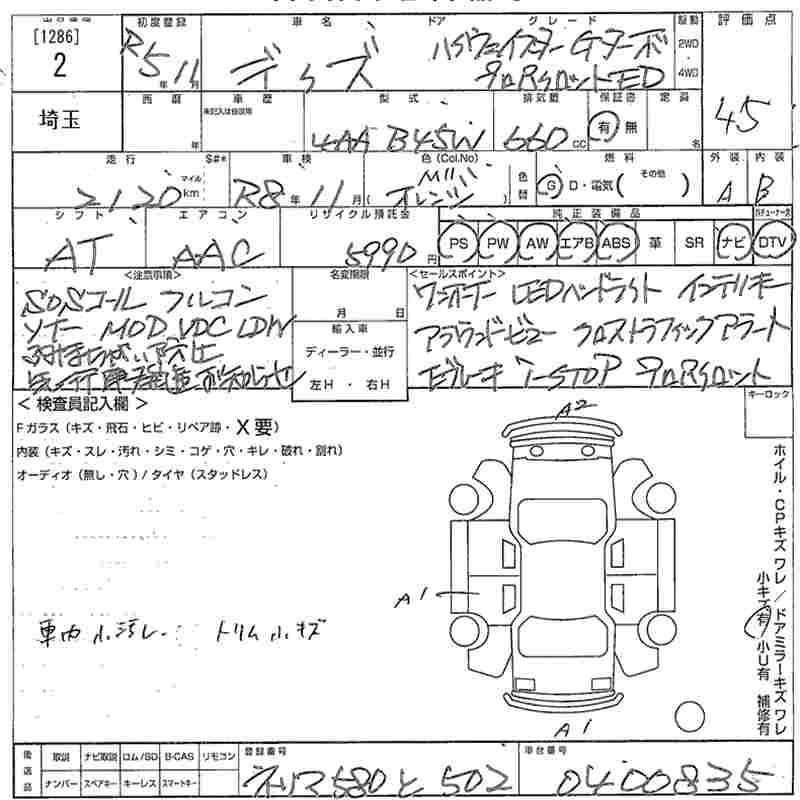 [1286]
2
埼玉
初度登録
R5 年 11 月
車名
デイズ
ドア グレード
ハイウェイスター Gターボ
プロパイロットED
駆動
2WD
4WD
評価点
4.5
西暦 年
車歴
未記入は自家用
型式
4AA B45W
排気量
660 cc
保証書
有 無
定員 名
走行 S#*
2120 マイル km
車検
R8 年 11 月
色(Col.No)
M11
オレンジ
色替
燃料
G D・電気( その他 )
外装
A
内装
B
シフト
AT
エアコン
AAC
リサイクル預託金
5990 円
純正装備品
PS PW AW エアB ABS 革 SR ナビ DTV
<注意事項>
SOSコール フルコン
ソナー MOD VDC LDW
名変期限
月 日
輸入車
ディーラー・並行
左H ・ 右H
<セールスポイント>
ワンオーナー LEDヘッドライト インテリキー
アラウンドビュー クロストラフィックアラート
Eブレーキ i-STOP プロパイロット
< 検査員記入欄 >
Fガラス(キズ・飛石・ヒビ・リペア跡・X要)
内装(キズ・スレ・汚れ・シミ・コゲ・穴・キレ・破れ・割れ)
オーディオ(無し・穴)/タイヤ(スタッドレス)
車内小汚レ トリム小キズ
A2
A1
A1
キーロック
ホイル・CPキズ ワレ/ドアミラーキズ ワレ
小キズ有 小U有 補修有
後送品
取説 ナビ取説 ロム/SD B-CAS リモコン
ナンバー スペアキー キーレス スマートキー
登録番号
ネリマ580と502
車台番号
0400835